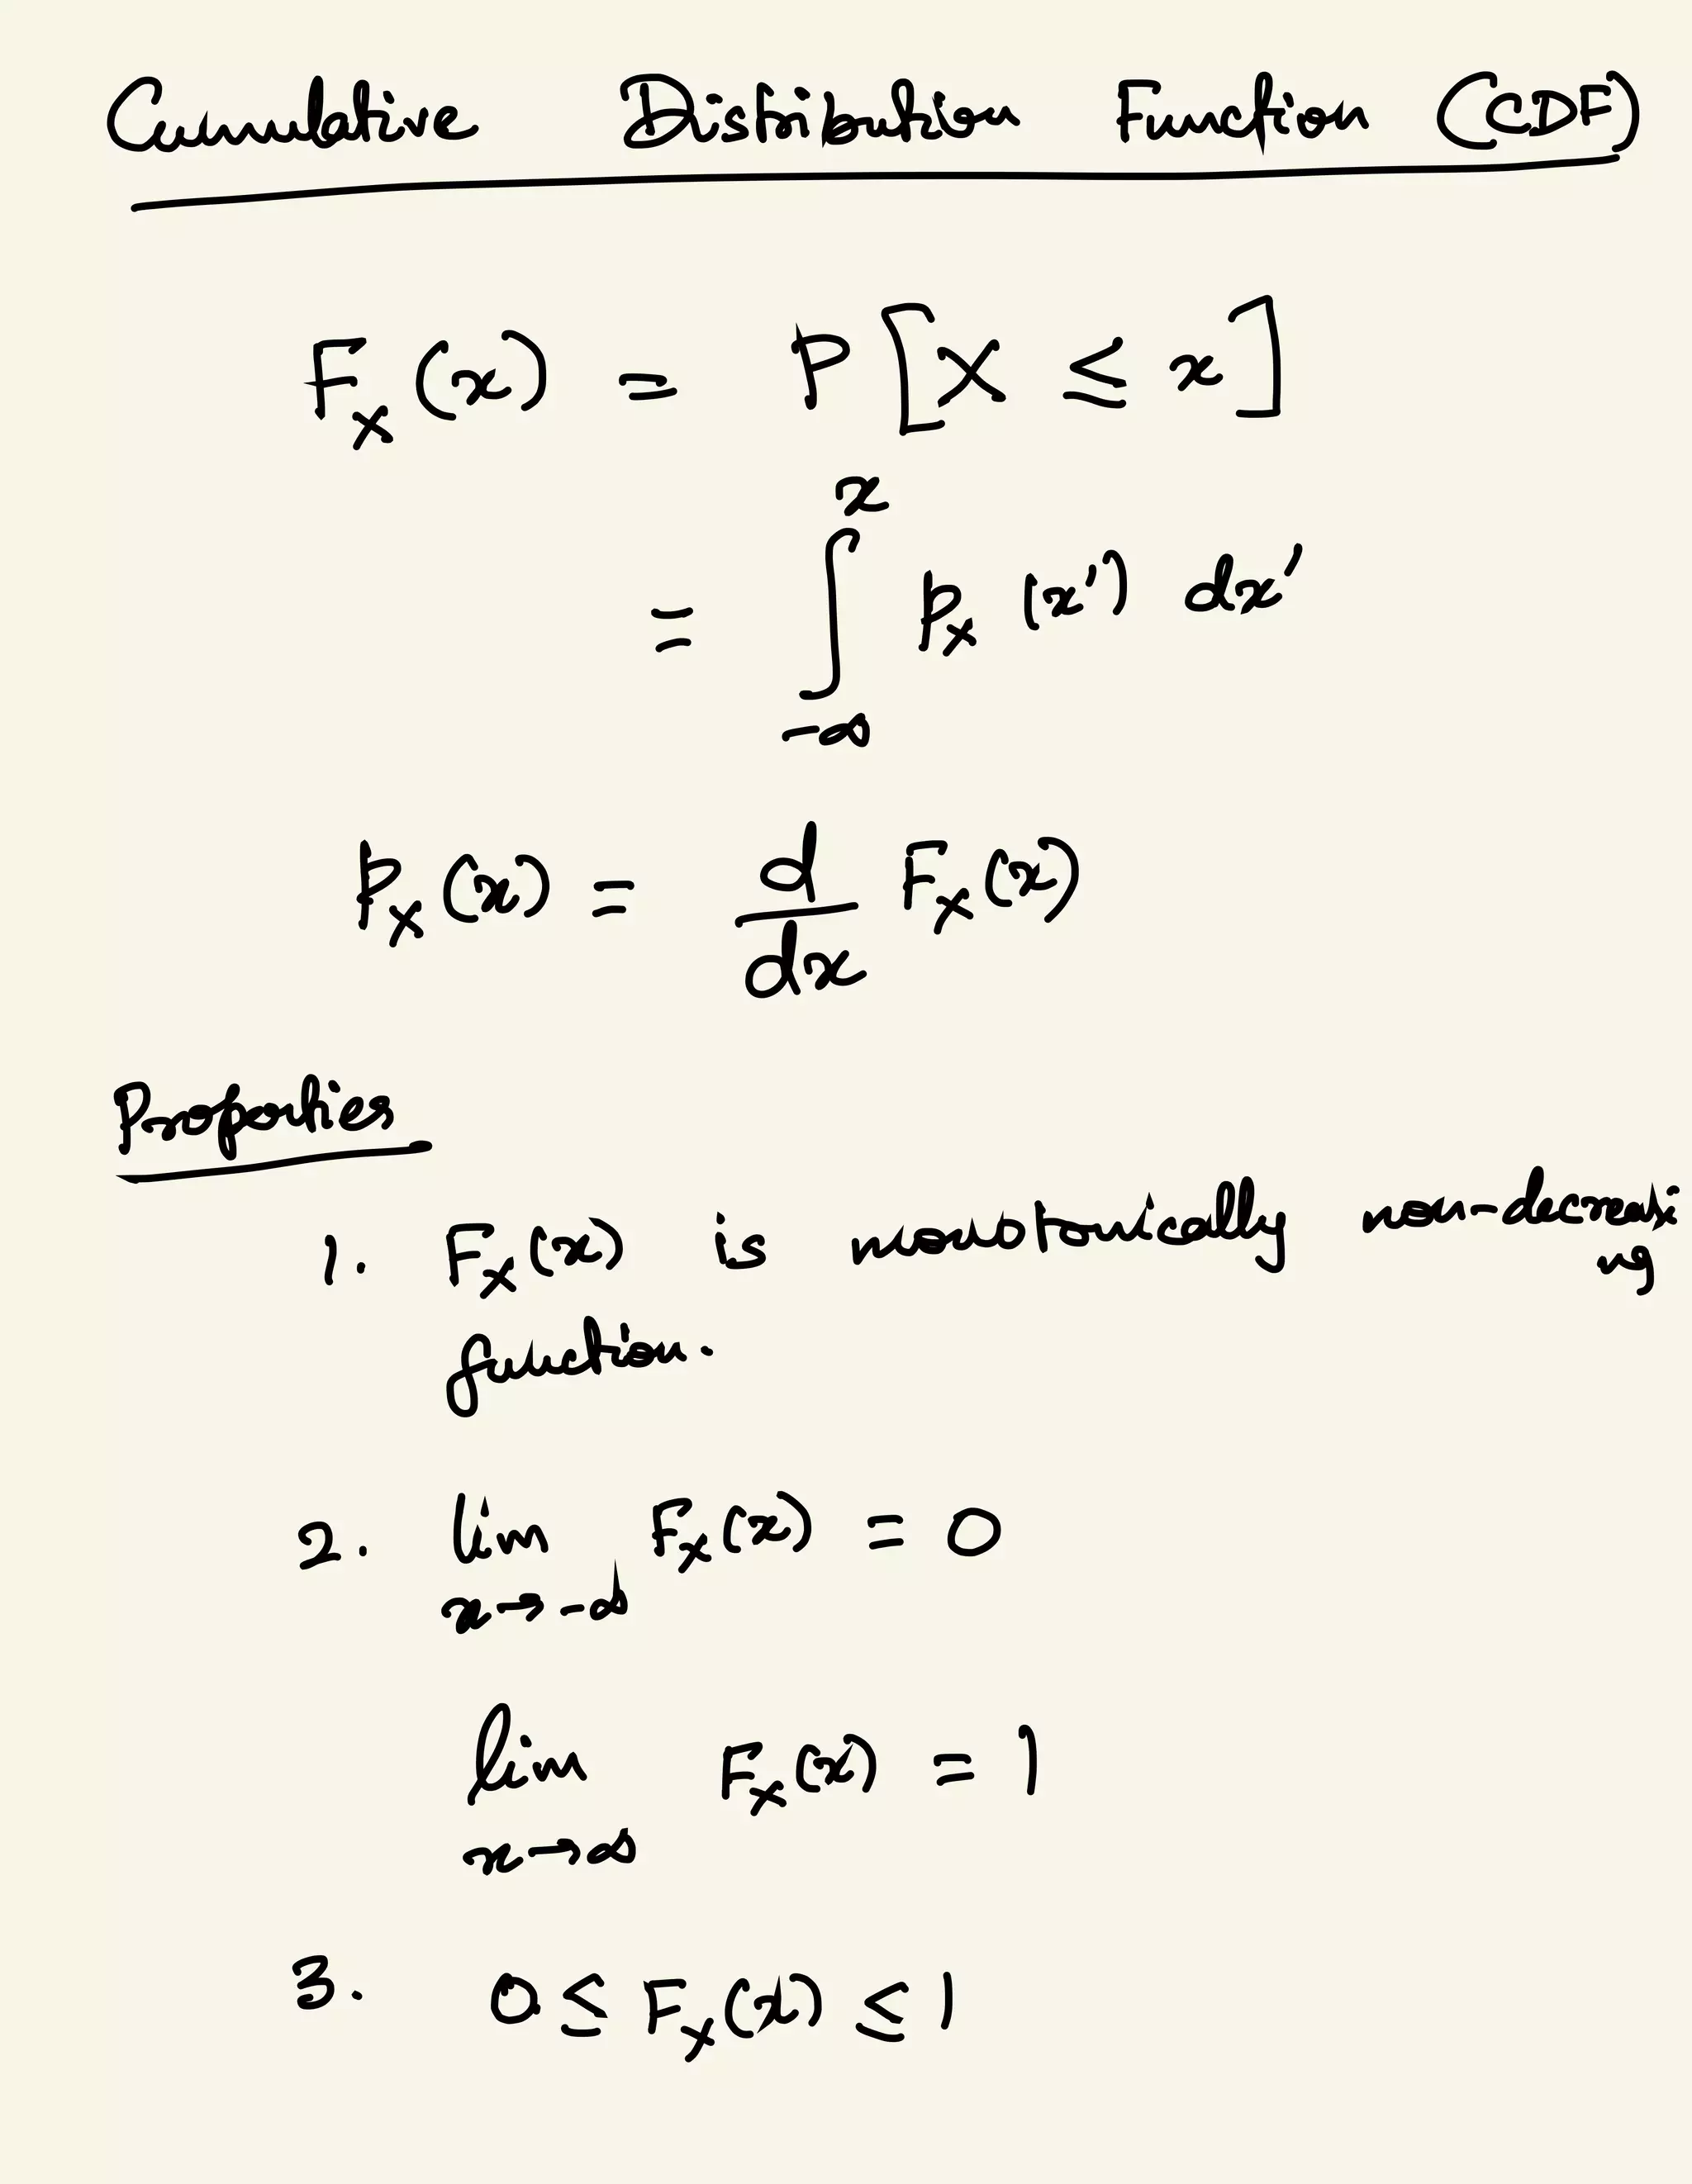 Cumulative Distribution Function (CDF)
F_X(x) = P[X ≤ x]
= ∫_{-∞}^{x} p_X(x') dx'
p_X(x) = d/dx F_X(x)
Properties
1. F_X(x) is monotonically non-decreasing
function.
2. lim_{x→-∞} F_X(x) = 0
lim_{x→∞} F_X(x) = 1
3. 0 ≤ F_X(x) ≤ 1